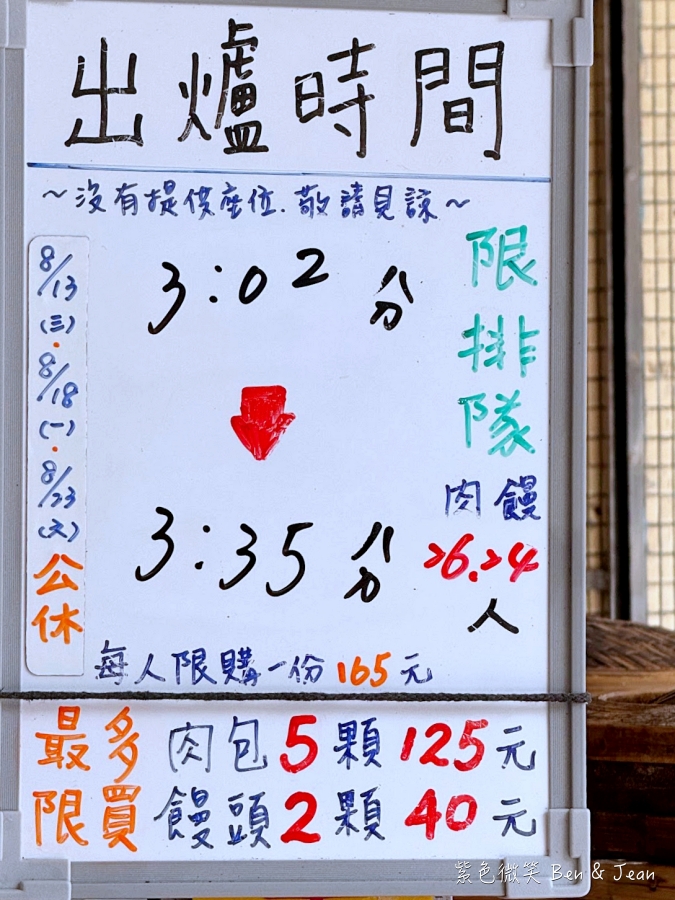 出爐時間
~沒有提供座位.敬請見諒~
8/13
(三)
8/18
(一)
8/23
(六)
公休
3:02分
3:35分
限排隊
肉 饅
26.24
人
每人限購一份165元
最多 肉包5顆125元
限買 饅頭2顆40元
紫色微笑 Ben & Jean